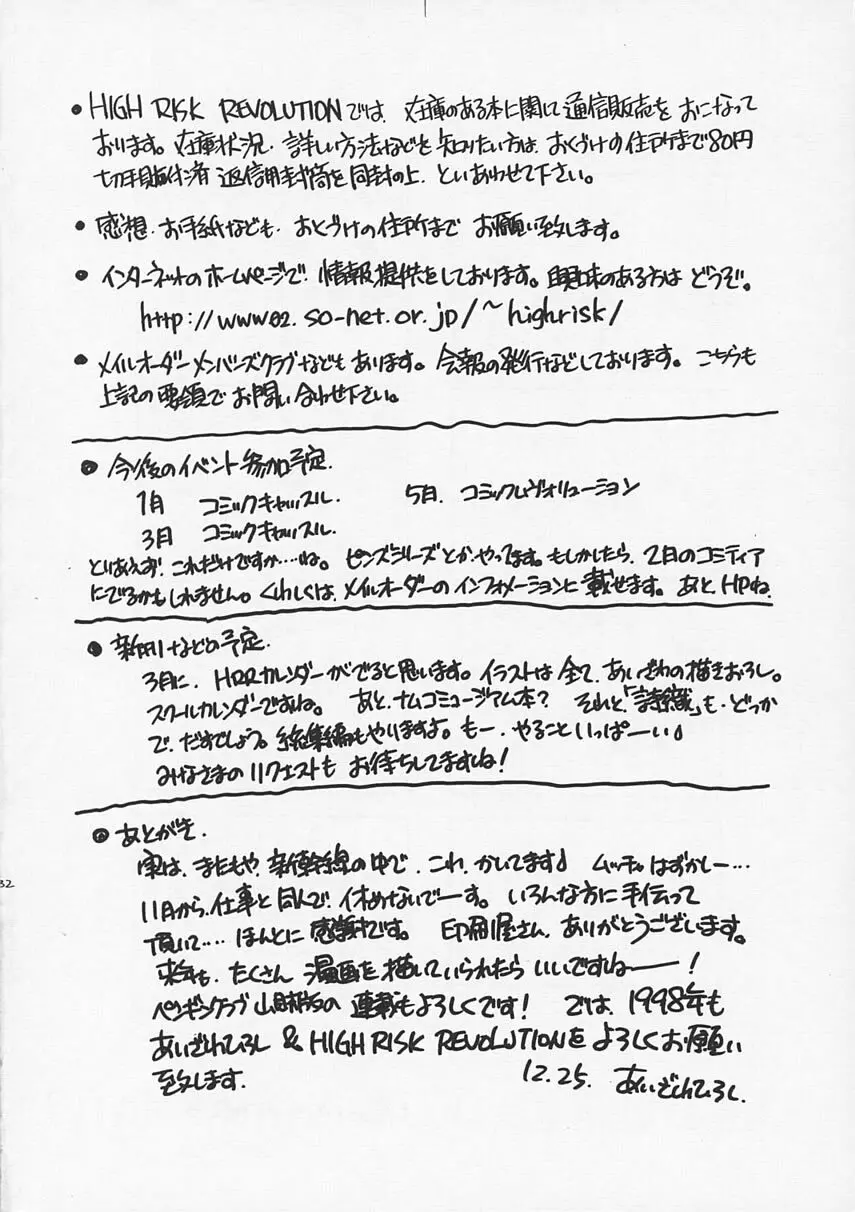 • HIGH RISK REVOLUTIONでは、在庫のある本に関して通信販売をおこなって
おります。在庫状況、詳しい方法などを知りたい方は、おくづけの住所まで80円
切手貼付済返信用封筒を同封の上、といあわせて下さい。
• 感想、お手紙なども、おくづけの住所までお願い致します。
• インターネットのホームページで情報提供をしております。興味のある方はどうぞ。
http://www02.so-net.or.jp/~highrisk/
• メイルオーダーメンバーズクラブなどもあります。会報の発行などしております。こちらも
上記の要領でお問い合わせ下さい。
• 今後のイベント参加予定.
1月 コミックキャッスル. 5月. コミックレヴォリューション
3月 コミックキャッスル.
といあえず、これだけですか……ね。ピンズシリーズとか、やってます。もしかしたら、2月のコミティア
にでるかもしれません。くわしくは、メイルオーダーのインフォメーションに載せます。あと、HPね.
• 新刊などの予定.
3月に、HRRカレンダーがでると思います。イラストは全て、あいざわの描きおろし。
スクールカレンダーですね。あと、ナムコミュージアム本? それと「詩織」も、どっか
で、だすでしょう。総集編もやりますよ。もー、やることいっぱーい♪
みなさまのリクエストもお待ちしてますね!
• あとがき.
実は、またもや、新幹線の中で、これ、かいてます♪ ムッチャはずかしー…
11月から、仕事と同人で、休めないでーす。いろんな方に手伝って
頂いて…. ほんとに感謝です。印刷屋さん、ありがとうございます。
来年も、たくさん漫画を描いていられたらいいですねー!
ペンギンクラブ山賊版の連載もよろしくです! では、1998年も
あいざわひろし & HIGH RISK REVOLUTIONをよろしくお願い
致します.
12.25. あいざわひろし.
32